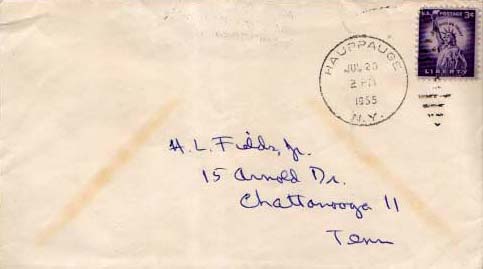 U.S. POSTAGE 3¢
LIBERTY
HAUPPAUGE
JUL 20
2 PM
1955
N.Y.
H. L. Fields, Jr.
15 Arnold Dr.
Chattanooga 11
Tenn